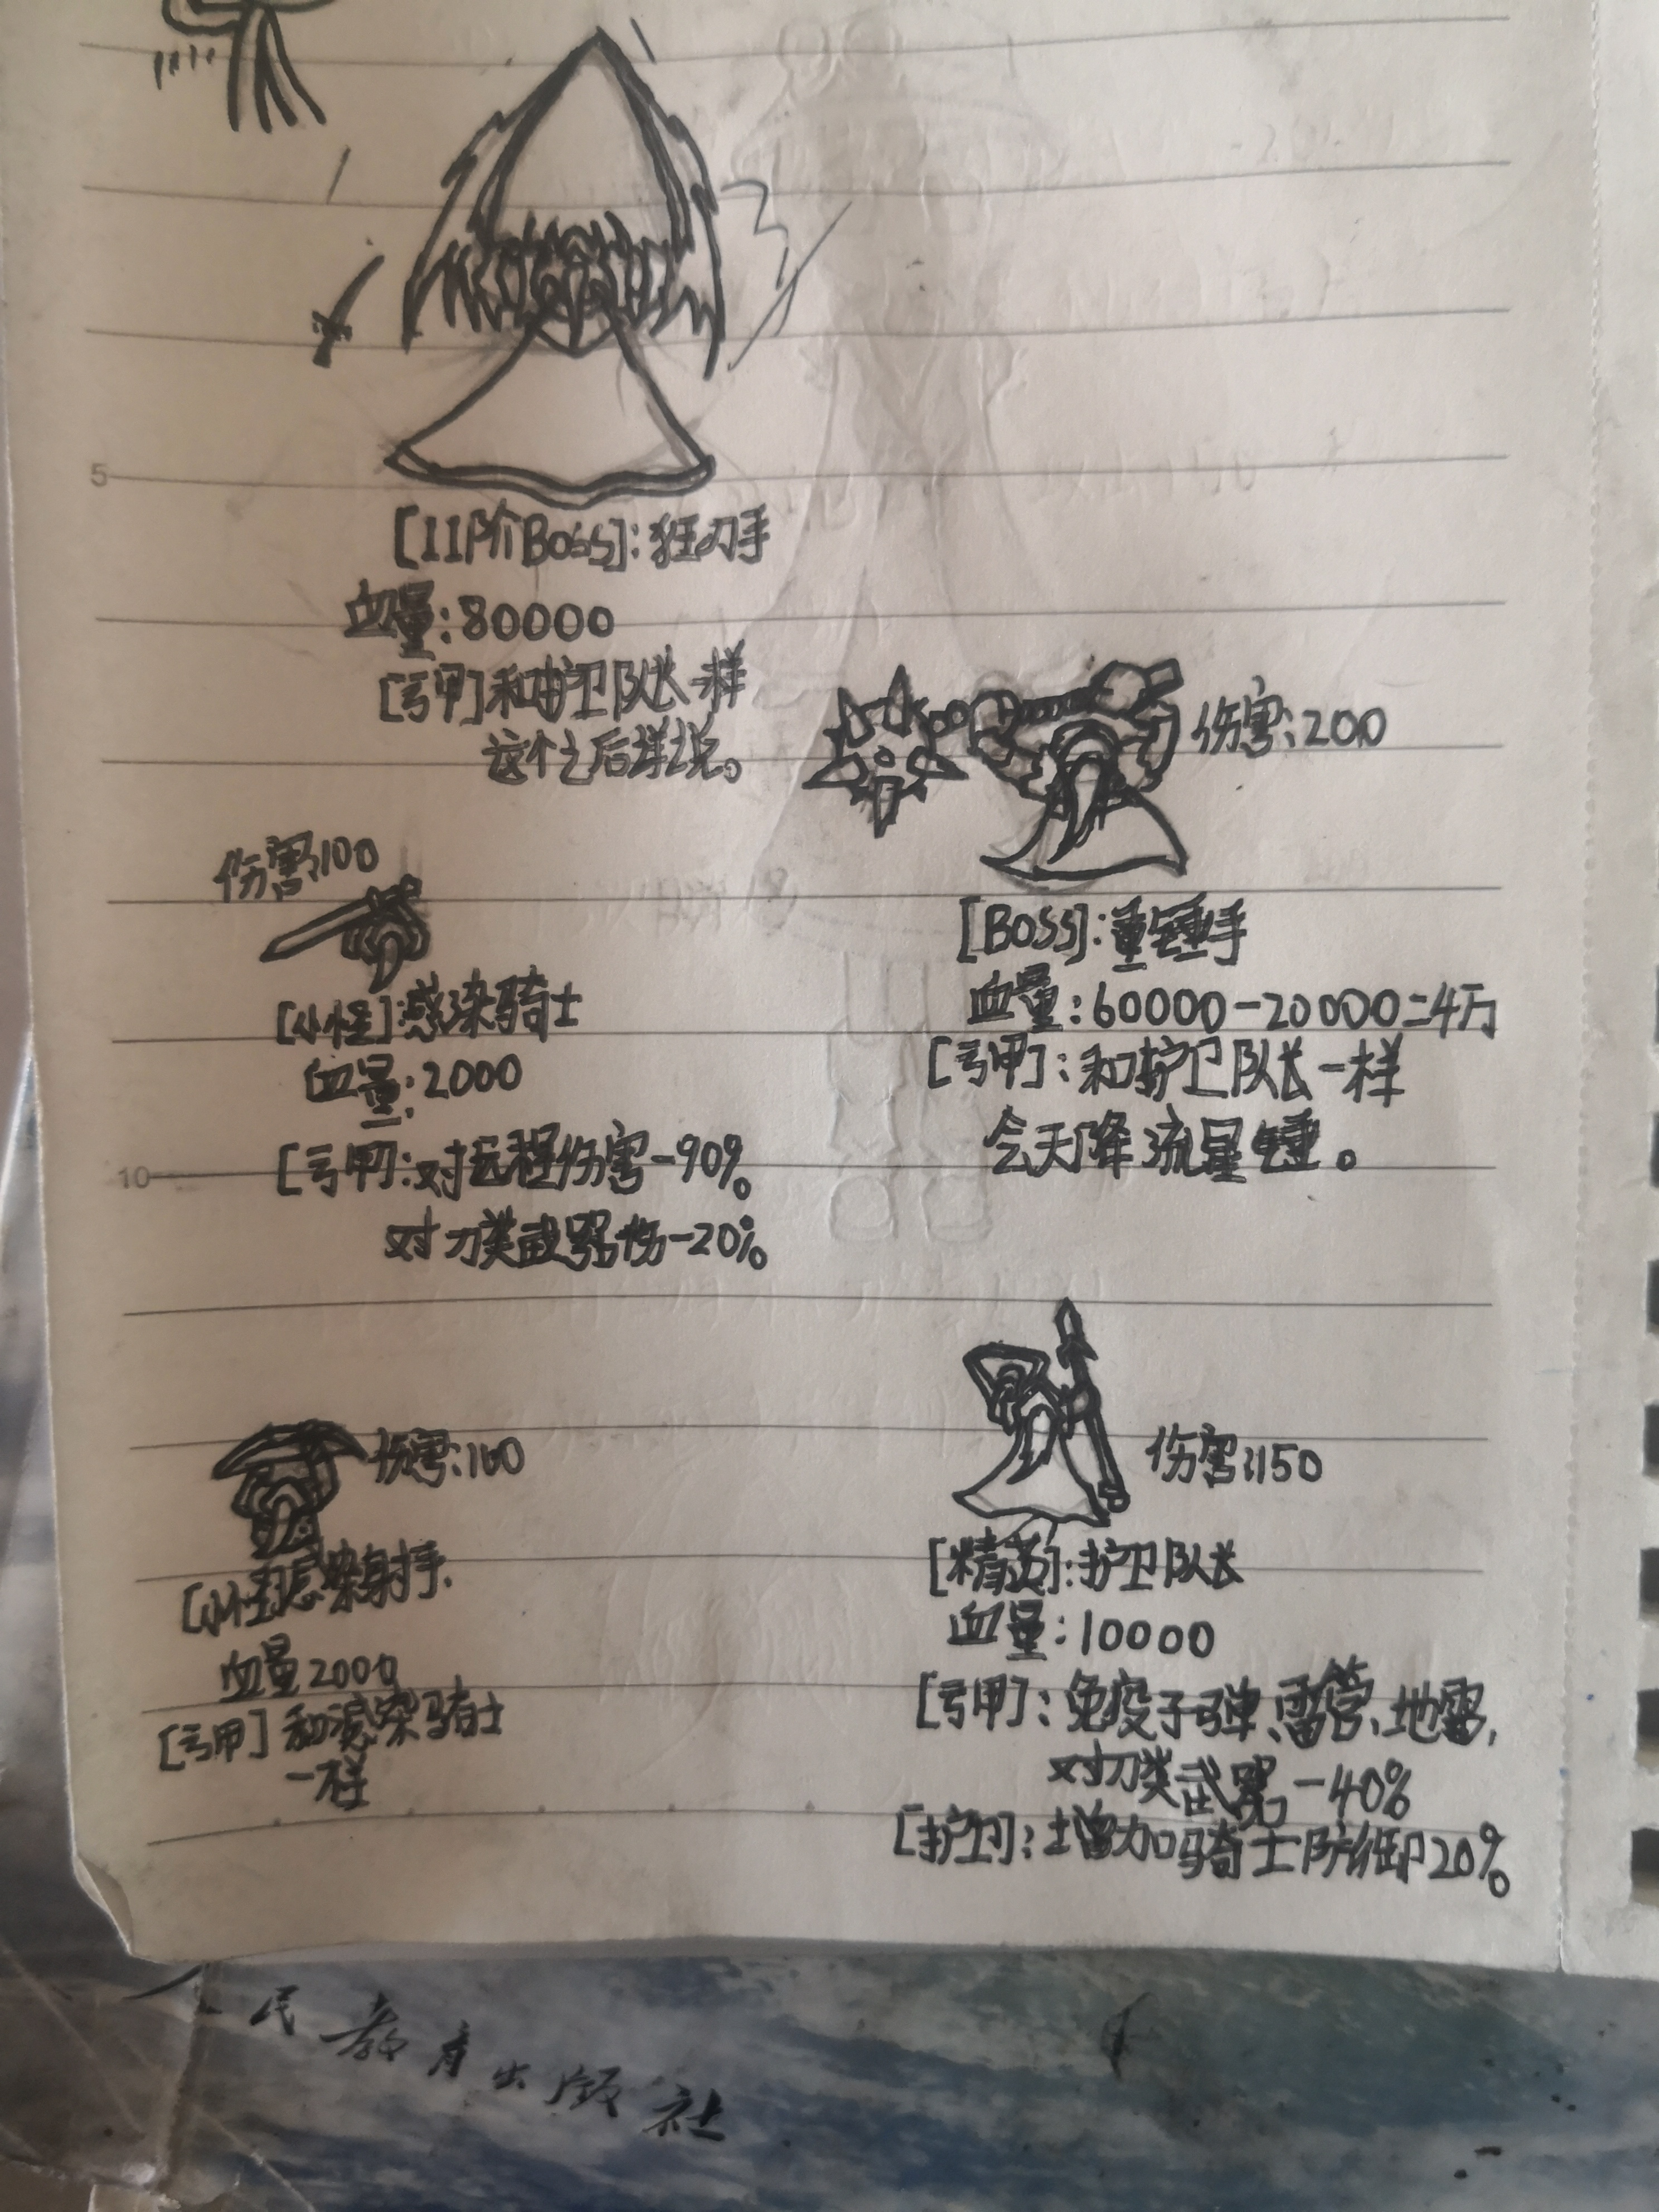 5
[II阶Boss]:狂刀手
血量:80000
[弓甲]和护卫队长一样
这个之后详说。
伤害:200
[BOSS]:重锤手
血量:60000-20000=4万
[弓甲]:和护卫队长一样
会天降流星锤。
伤害:100
[小怪]:感染骑士
血量:2000
10
[弓甲]:对远程伤害-90%
对刀类武器伤-20%
伤害:100
[小怪]感染射手.
血量2000
[弓甲]和感染骑士
一样
伤害:150
[精英]:护卫队长
血量:10000
[弓甲]:免疫子弹、雷管、地雷,
对刀类武器-40%
[护卫]:增加骑士防御20%
人民教育出版社